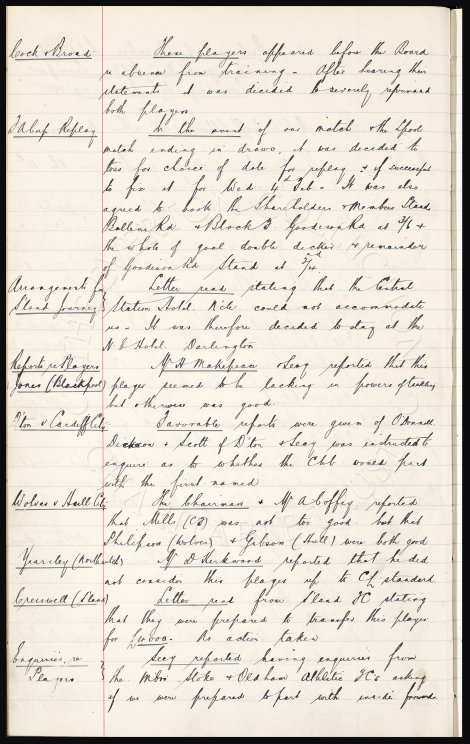 Cock & Broad. These players appeared before the Board
re absence from training - After hearing their
statements it was decided to severely reprimand
both players
F.A. Cup Replay In the event of our match & the L'pool
match ending in draws, it was decided to
toss for choice of date for replay & if successful
to fix it for Wed 4th Feb - It was also
agreed to book the Shareholders & Members Stand,
Bullens Rd & Block 3. Goodison Rd at 3/6 &
the whole of goal double decker & remainder
of Goodison Rd Stand at 2/4
Arrangements for Letter read stating that the Central
S'land Journey Station Hotel, N'cle could not accommodate
us - It was therefore decided to stay at the
N E Hotel Darlington
Reports re Players Mr H Makepeace & Secy reported that this
Jones (Blackpool) player seemed to be lacking in powers of tackling
but otherwise was good.
D'ton & Cardiff City Favorable reports were given of O'Donnell
Dickson & Scott of D'ton & Secy was instructed to
enquire as to whether the Club would part
with the first named
Wolves & Hull City The Chairman & Mr A Coffey reported
that Mills (CO) was not too good. but that
Philipson (Wolves) & Gibson (Hull) were both good
Yearsley (Northwich) Mr D Kirkwood reported that he did
not consider this player up to CL standard
Cresswell (S'land) Letter read from S'land FC stating
that they were prepared to transfer this player
for £10,000. No action taken
Enquiries re Secy reported having enquiries from
Players the Stoke & Oldham Athletic FCs asking
if we were prepared to part with inside forwards.